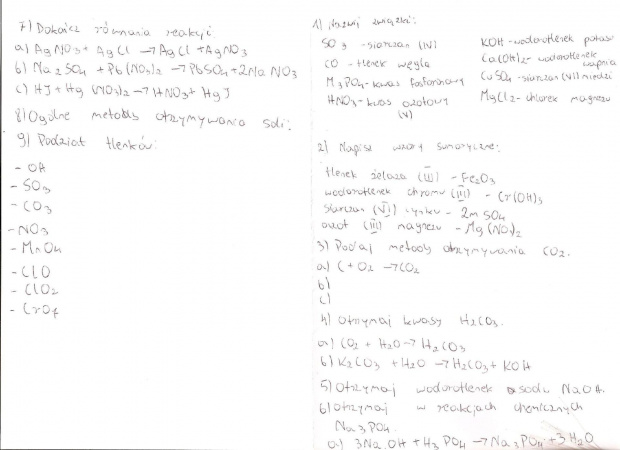 7) Dokończ równania reakcji:
a) AgNO3 + AgCl → AgCl + AgNO3
b) Na2SO4 + Pb(NO3)2 → PbSO4 + 2NaNO3
c) HJ + Hg(NO3)2 → HNO3 + HgJ
8) Ogólne metody otrzymywania soli:
9) Podział tlenków:
- OH
- SO3
- CO3
- NO3
- MnO4
- ClO
- ClO2
- CrO4
1) Nazwij związki:
SO3 - siarczan (IV)
CO - tlenek węgla
M3PO4 - kwas fosforowy
HNO3 - kwas azotowy (V)
KOH - wodorotlenek potasu
Ca(OH)2 - wodorotlenek wapnia
CuSO4 - siarczan (VI) miedzi
MgCl2 - chlorek magnezu
2) Napisz wzory sumaryczne:
tlenek żelaza (III) - Fe2O3
wodorotlenek chromu (III) - Cr(OH)3
siarczan (VI) cynku - ZnSO4
azot (III) magnezu - Mg(NO2)2
3) Podaj metody otrzymywania CO2.
a) C + O2 → CO2
b)
c)
4) Otrzymaj kwasy H2CO3.
a) CO2 + H2O → H2CO3
b) K2CO3 + H2O → H2CO3 + KOH
5) Otrzymaj wodorotlenek sodu NaOH.
6) Otrzymaj w reakcjach chemicznych
Na3PO4.
a) 3NaOH + H3PO4 → Na3PO4 + 3H2O